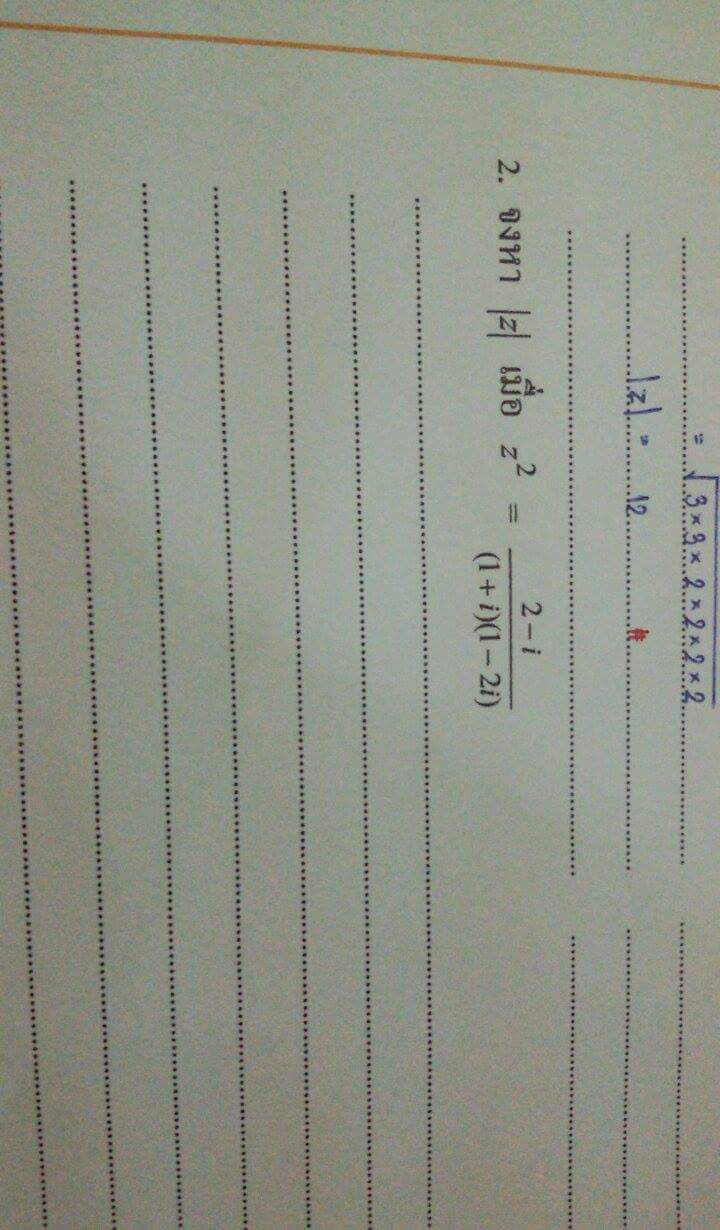 = √3×3×2×2×2×2
|z| = 12 #
2. จงหา |z| เมื่อ z² = (2 − i) / ((1 + i)(1 − 2i))